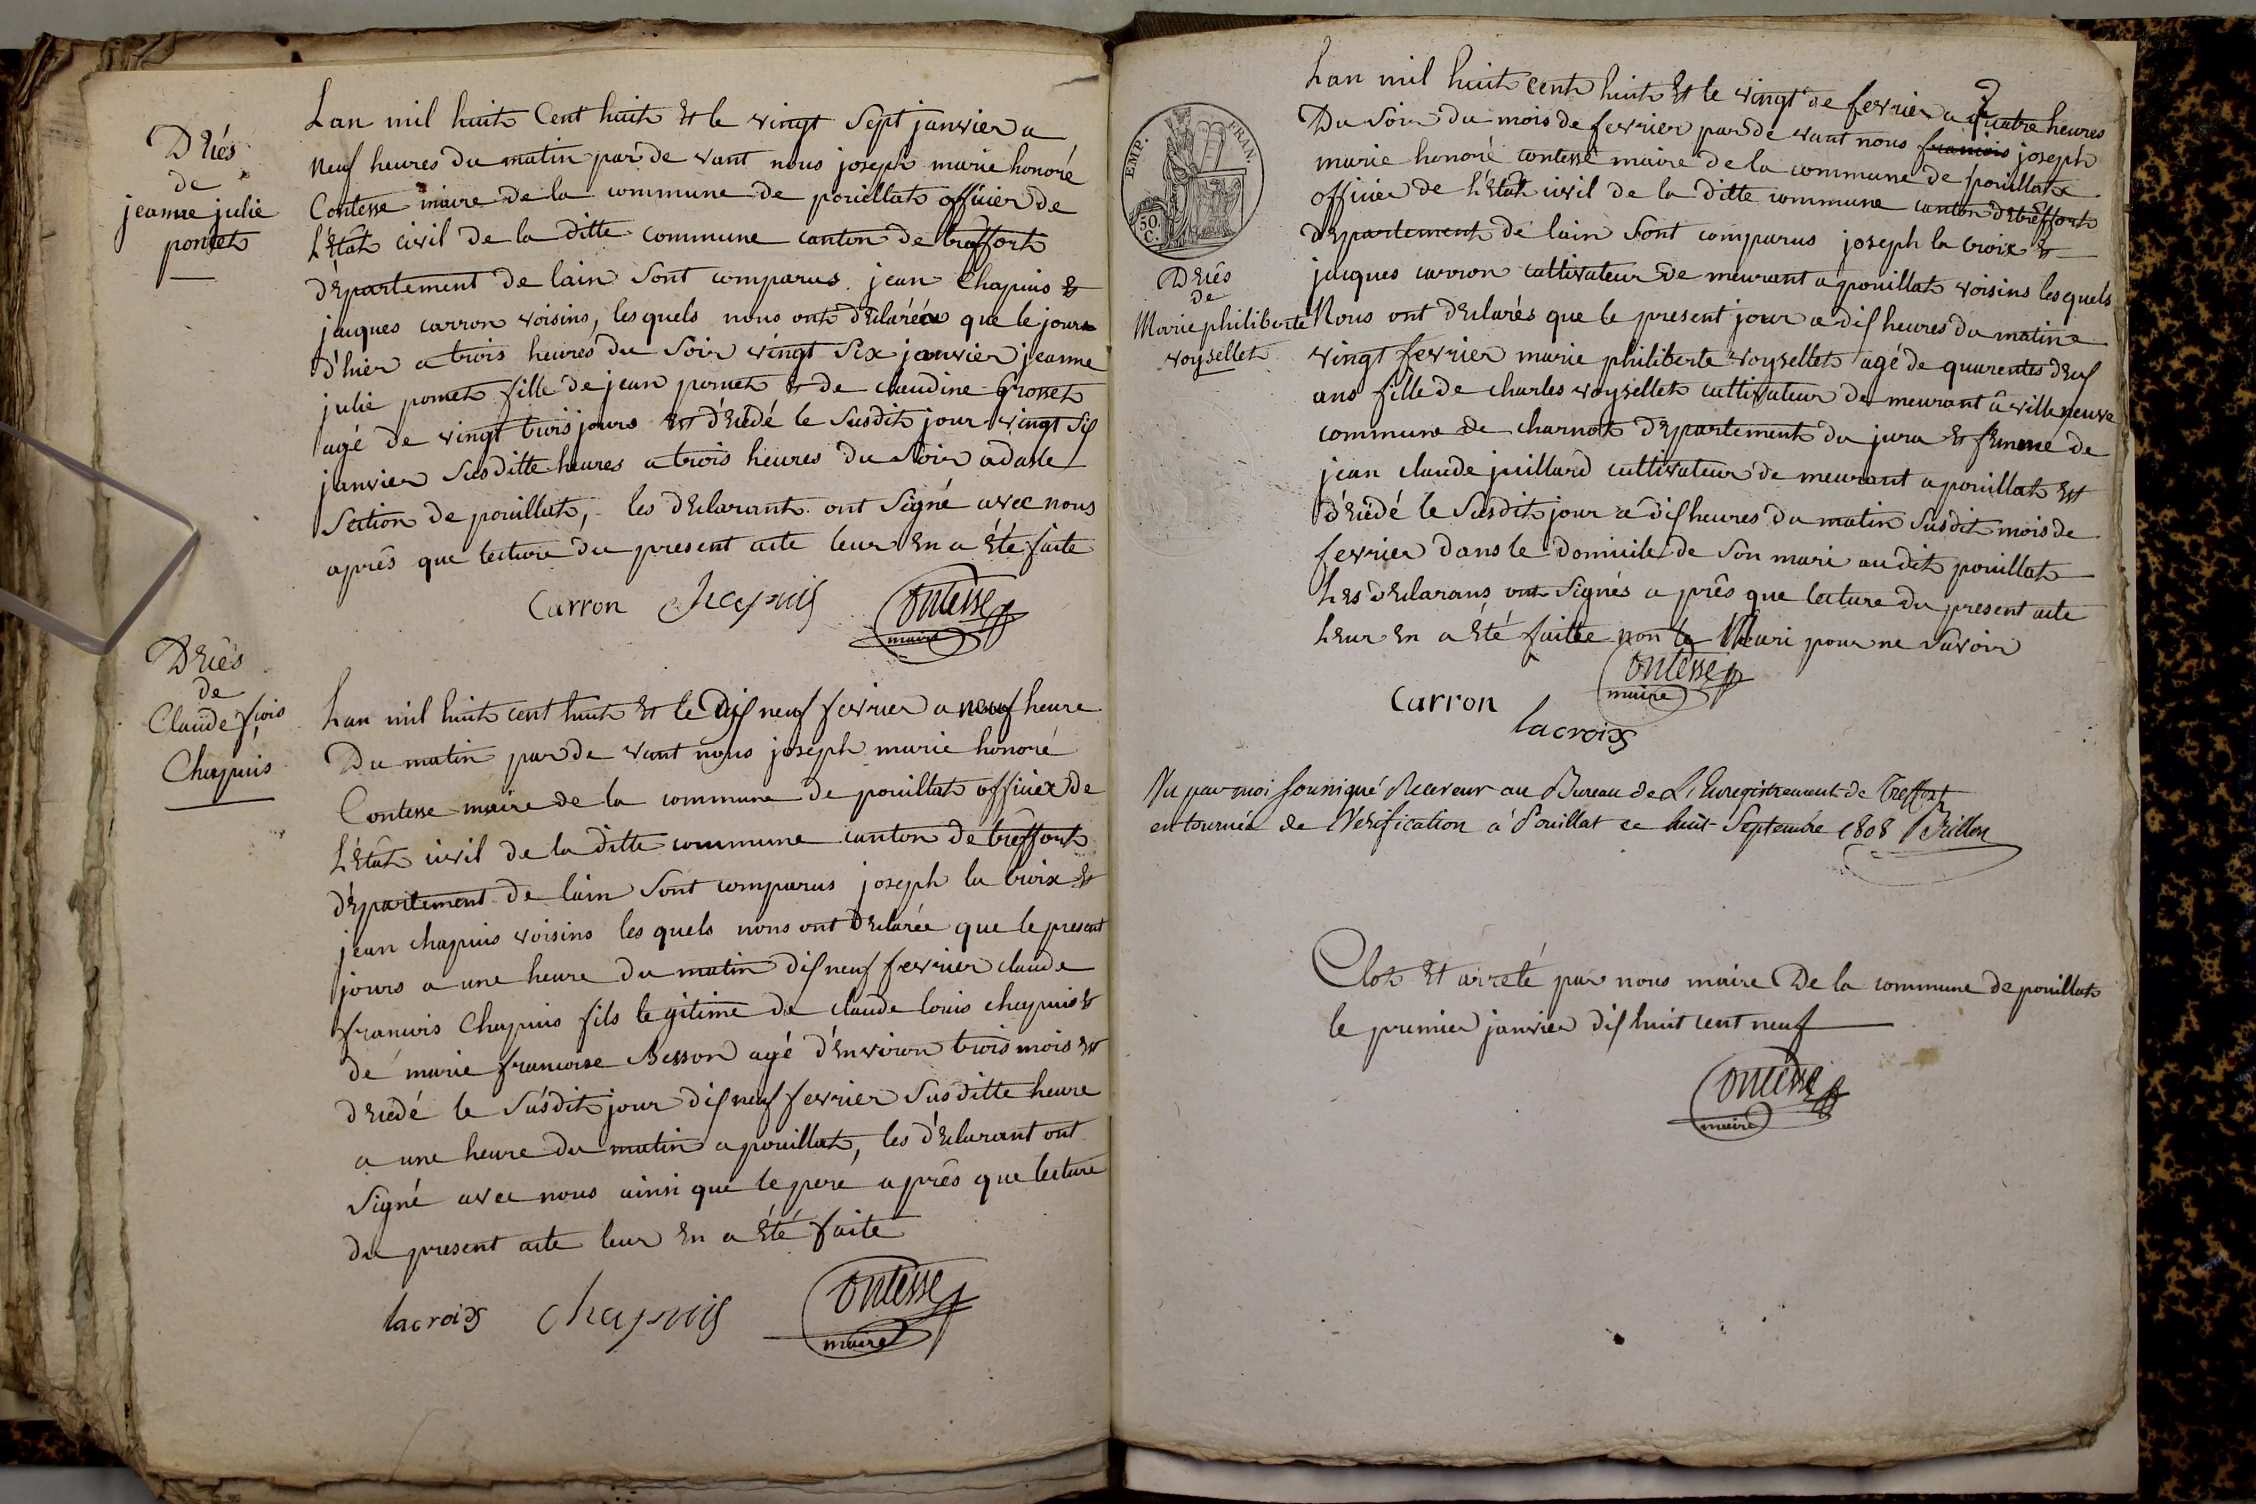 Déces
de
jeanne julie
ponet
Lan mil huit Cent huit et le vingt Sept janvier a
neuf heures du matin par de vant nous joseph marie honoré
Contesse maire de la commune de pouillat officier de
L'Etât civil de la ditte commune canton de treffort
département de lain sont comparus jean Chapuis et
jacques carron voisins, les quels nous ont déclaréés que le jour
d'hier a trois heures du Soir vingt Six janvier jeanne
julie pomet fille de jean pomet et de claudine grosset
agé de vingt trois jours est décédé le susdit jour vingt Six
janvier Susditte heures a trois heures du Soir a dasle
Section de pouillat, les déclarant ont Signé avec nous
aprês que lecture du present acte leur En a Eté faite
Carron Chapuis Contesse
maire
Décês
de
Claude fçois
Chapuis
Lan mil huit cent huit et le dix neuf fevrier a neuf heure
Du matin par de vant nous joseph marie honoré
Contesse maire de la commune de pouillat officier de
L'Etât civil de la ditte commune canton de treffort
département de lain Sont comparus joseph la croix et
jean chapuis voisins les quels nous ont déclarée que le present
jours a une heure du matin dix neuf fevrier claude
francois Chapuis fils legitime de claude louis chapuis et
de marie francoise Besson agé d'Environ trois mois est
décédé le susdit jour dix neuf fevrier Sus ditte heure
a une heure du matin a pouillat, les déclarant ont
Signé avec nous ainsi que le pere aprês que lecture
du present acte leur En a Eté faite
lacroix chapuis Contesse
maire
2
EMP. FRAN.
50.
C.
Décês
de
Marie philiberte
voysellet
Lan mil huit cent huit et le vingt de fevrier a quatre heures
Du Soir du mois de fevrier par de vant nous francois joseph
marie honoré contesse maire de la commune de pouillat
officier de L'Etât civil de la ditte commune canton de treffort
département de lain Sont comparus joseph la croix et
jacques carron cultivateur de meurant a pouillat voisins les quels
Nous ont déclarés que le present jour a dix heures du matin
vingt fevrier marie philiberte voysellet agé de quarentes deux
ans fille de charles voysellet cultivateur de meurant â villeneuve
commune de charnot département du jura et femme de
jean claude juillard cultivateur de meurant a pouillat est
décédé le Susdit jour a dix heures du matin Susdit mois de
fevrier dans le domicile de Son mari audit pouillat
Les déclarans ont Signés a prês que lecture du present acte
Leur En a Eté faitte non le Meari pour ne Savoir
Contesse
maire
Carron
lacroix
Vu par moi Soussigné Receveur au Bureau de L'Enregistrement de Treffort
en tournée de Vérification à Pouillat ce huit Septembre 1808
Clos Et arreté par nous maire De la commune de pouillat
le premier janvier dix huit cent neuf
Contesse
maire